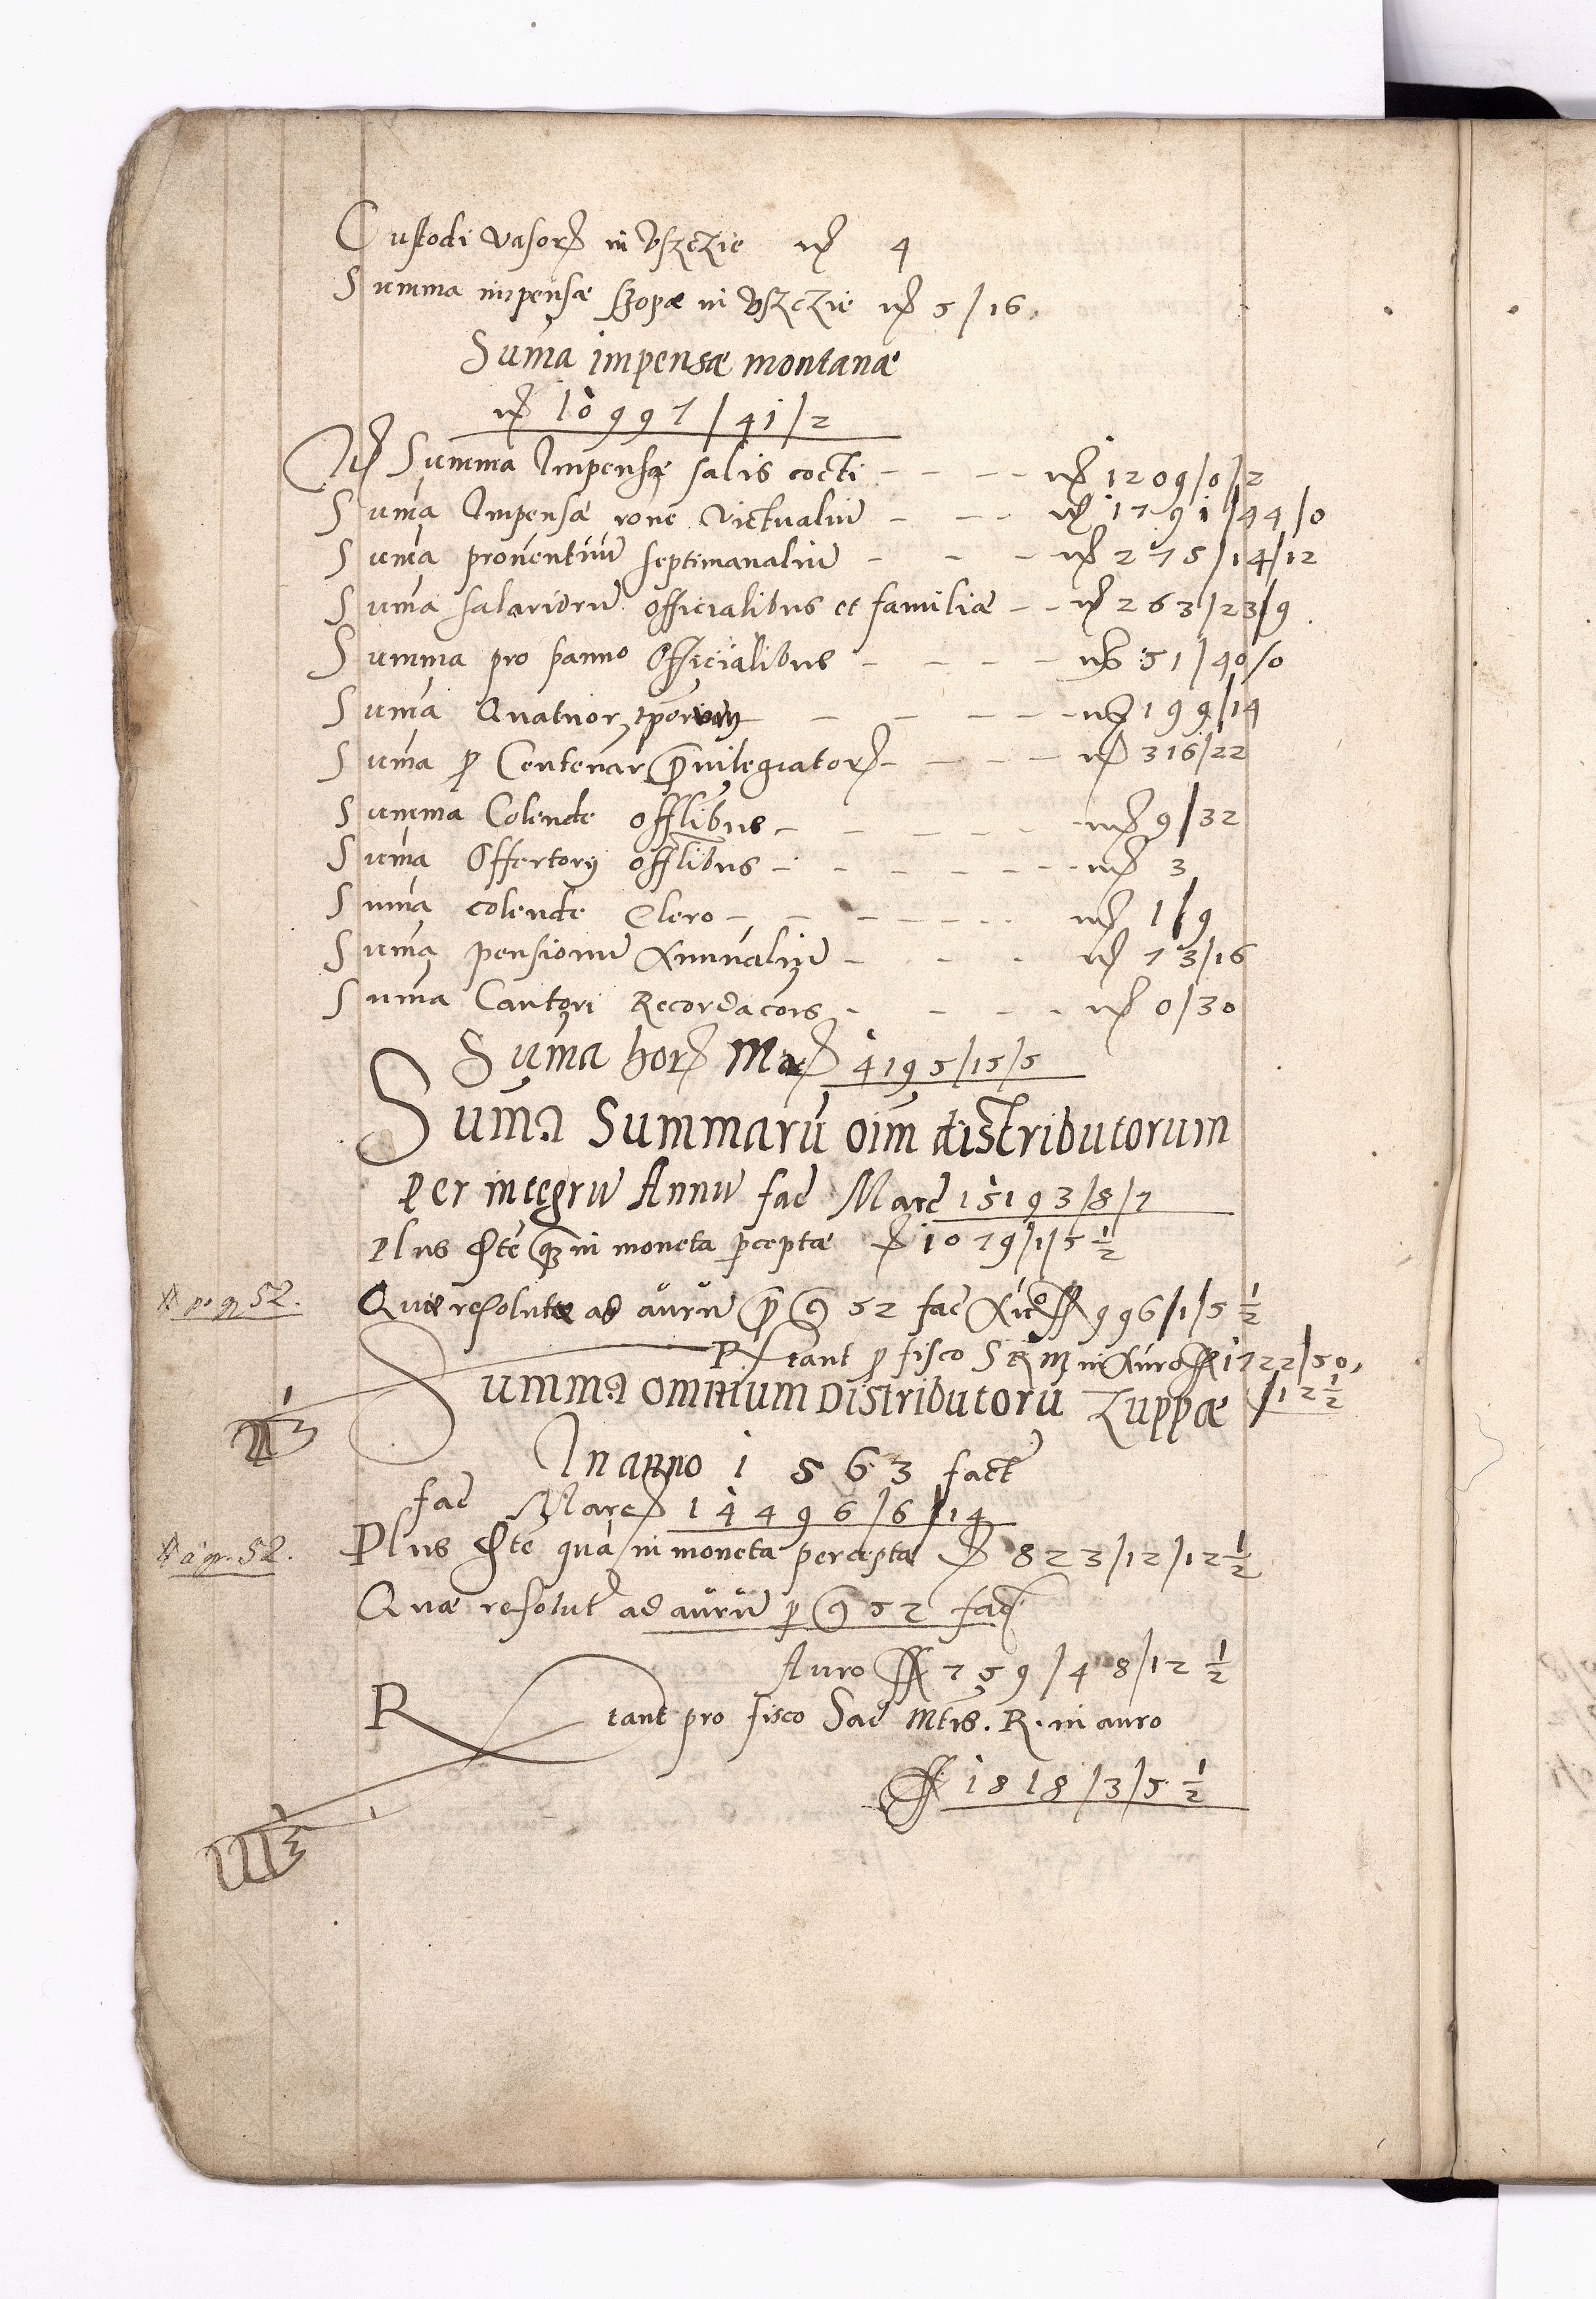 Custodi vasor in Vszczie mr 4
Summa impensæ szopæ in Vszczie mr 5/16.
Suma impensæ montanæ
mr 10997/41/2
Itl Summa Impensæ salis cocti - - - - mr 1209/0/2
Suma Impensæ rone victualiu - - - mr 1791/44/0
Suma prouentuu septimanaliu - - - mr 275/14/12
Suma salarioru officialibus et familiæ - - mr 263/23/9
Summa pro panno Officialibus - - - - mr 51/40/0
Suma Quatuor - - - - - mr 199/14
Suma p Centenar Priuilegiator - - - - mr 316/22
Summa Colende offlibus - - - - - mr 9/32
Suma Offertorij offlibus - - - - - - mr 3
Suma colende Clero - - - - - - mr 1/9
Suma pensionu Annualiu - - - mr 73/16
Suma Cantori Recordacois - - - - mr 0/30
Suma hor Mar 4195/15/5
Suma Summaru oim distributorum
per integru Annu fac Marc 15193/8/7
Plus in moneta perceptæ 1079/1/5 1/2
* pr gr 52.
Quæ resolutæ ad auru pr 52 fac 996/1/5 1/2
Rtant p fisco S R M in Auro 1722/50/
/12 1/2
Summa omnium Distributoru Zuppæ
In anno 1563 fact
fac Marc 14496/6/14
* a gr. 52.
Plus quã in moneta perceptæ 823/12/12 1/2
Quæ resolut ad auru p 52 fac
Auro 759/48/12 1/2
Rtant pro fisco Sac Mtis. R. in auro
1818/3/5 1/2